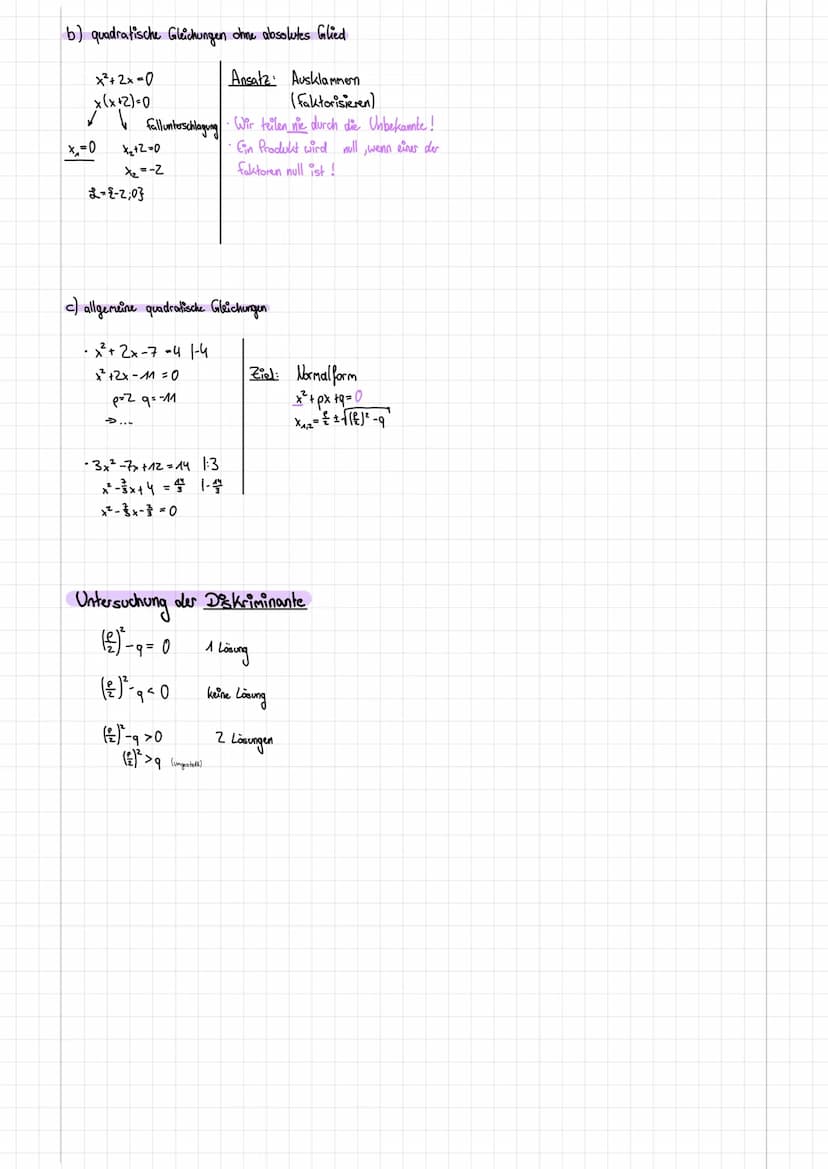 b) quadratische Gleichungen ohne absolutes Glied
x²+2x=0
x(x+2)=0
Fallunterschlagung
x₁=0 x₂+2=0
x₂=-2
L={-2;0}
Ansatz: Ausklammern
(Faktorisieren)
· Wir teilen nie durch die Unbekannte!
· Ein Produkt wird null, wenn einer der
Faktoren null ist!
c) allgemeine quadratische Gleichungen
· x²+2x-7=4 |-4
x²+2x-11=0
p=2 q=-11
→...
Ziel: Normalform
x²+px+q=0
x₁,₂=p/2 ± √((p/2)²-q)
· 3x²-7x+12=14 |:3
x²-7/3x+4=14/3 |-14/3
x²-7/3x-2/3=0
Untersuchung der Diskriminante
(p/2)²-q=0 1 Lösung
(p/2)²-q<0 keine Lösung
(p/2)²-q>0 2 Lösungen
(p/2)²>q (umgestellt)